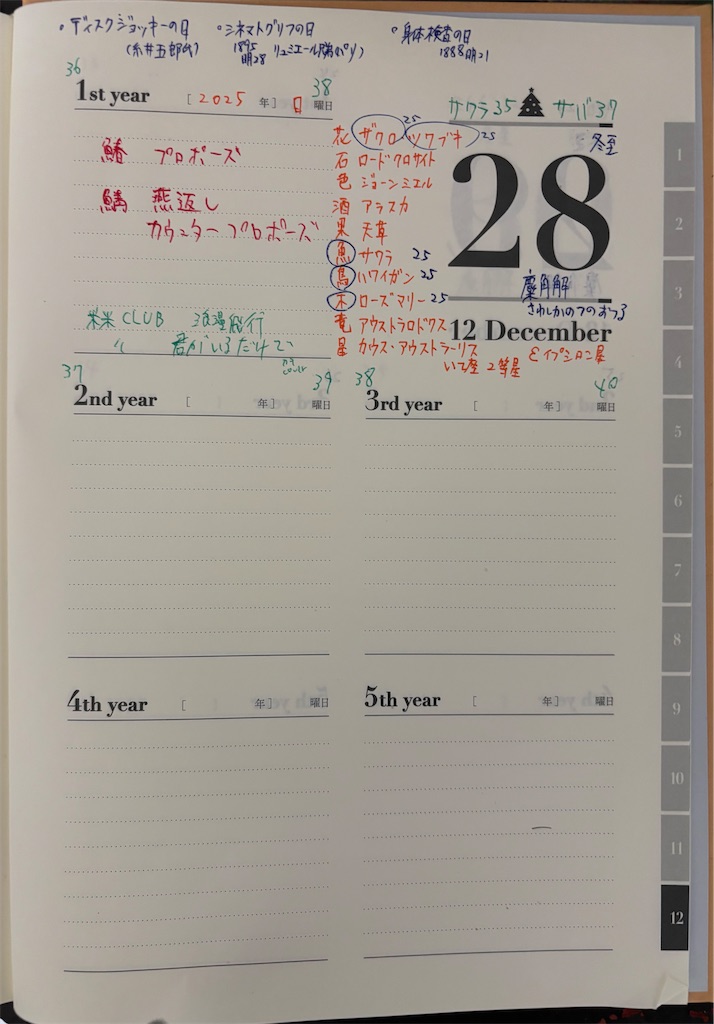 ・ディスクジョッキーの日 ・シネマトグラフの日 ・身体検査の日
(糸井五郎氏) 1895 明28 リュミエール兄弟(パリ) 1888明21
36
38
1st year [2025 年] 日 曜日
鰆 プロポーズ
鯖 燕返し
カウンタープロポーズ
米米CLUB 浪漫飛行
〃 君がいるだけで
サクラ35 サバ37
冬至
28
麋角解
さわしかのつのおつる
12 December
花 ザクロ 25 ツワブキ 25
石 ロードクロサイト
色 ジョーンミエル
酒 アラスカ
果 天草
魚 サワラ 25
鳥 ハワイガン 25
木 ローズマリー 25
竜 アウストラロドクス
星 カウス・アウストラーリス
いて座 2等星 εイプシロン星
37
39
2nd year [ 年] 曜日
38
40
3rd year [ 年] 曜日
4th year [ 年] 曜日
5th year [ 年] 曜日
1
2
3
4
5
6
7
8
9
10
11
12